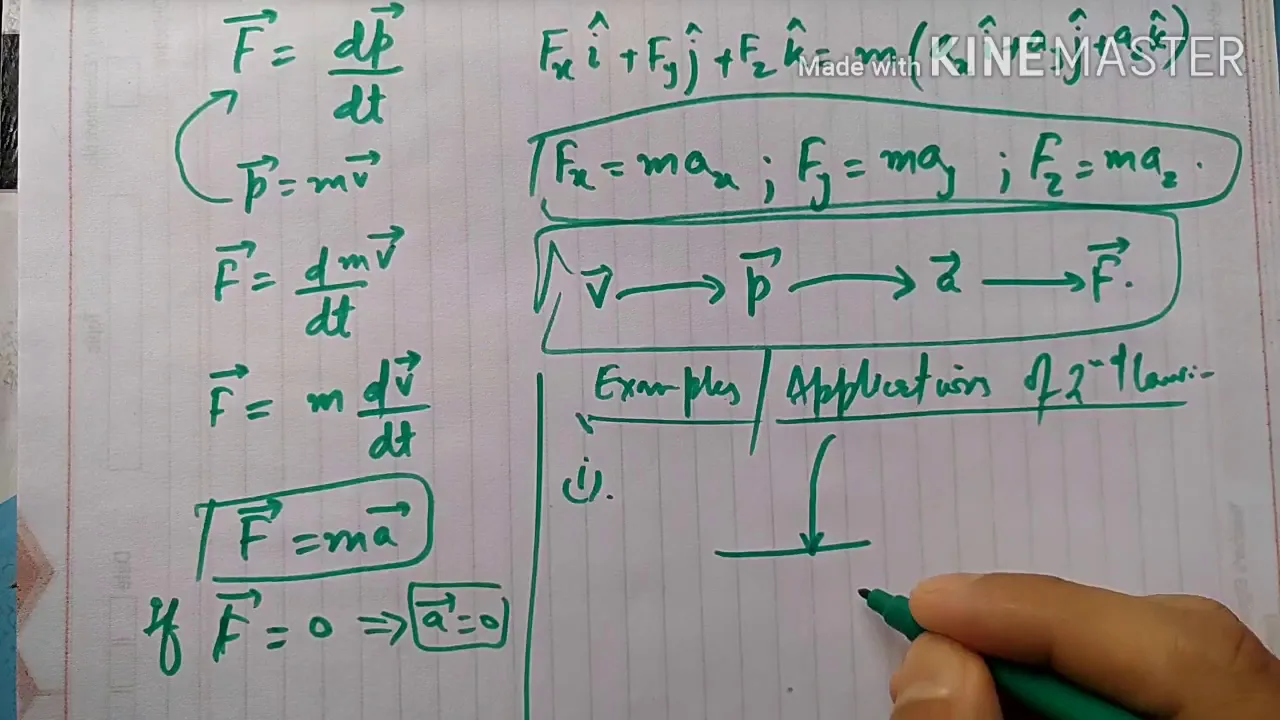 F⃗ = dp⃗/dt
p⃗ = mv⃗
F⃗ = dmv⃗/dt
F⃗ = m dv⃗/dt
F⃗ = ma⃗
If F⃗ = 0 ⇒ a⃗ = 0
Fₓ î + Fᵧ ĵ + F_z k̂ = m(
Made with KINEMASTER
Fₓ = maₓ ; Fᵧ = maᵧ ; F_z = ma_z .
v⃗ → p⃗ → a⃗ → F⃗.
Examples / Applications of 2nd law :-
(i).